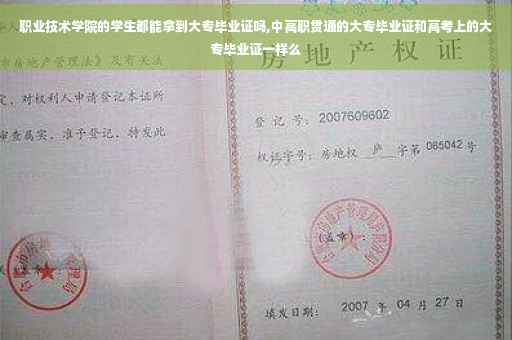 职业技术学院的学生都能拿到大专毕业证吗,中高职贯通的大专毕业证和高考上的大
专毕业证一样么
房地产权证
市房地产管理法》及有关法
定，对权利人申请登记本证所
审查属实，准予登记，特发此
登记号：2007609602
权证字号：房地权 庐 字第 085042 号
(盖章)：
填发日期： 2007 年 04 月 27 日